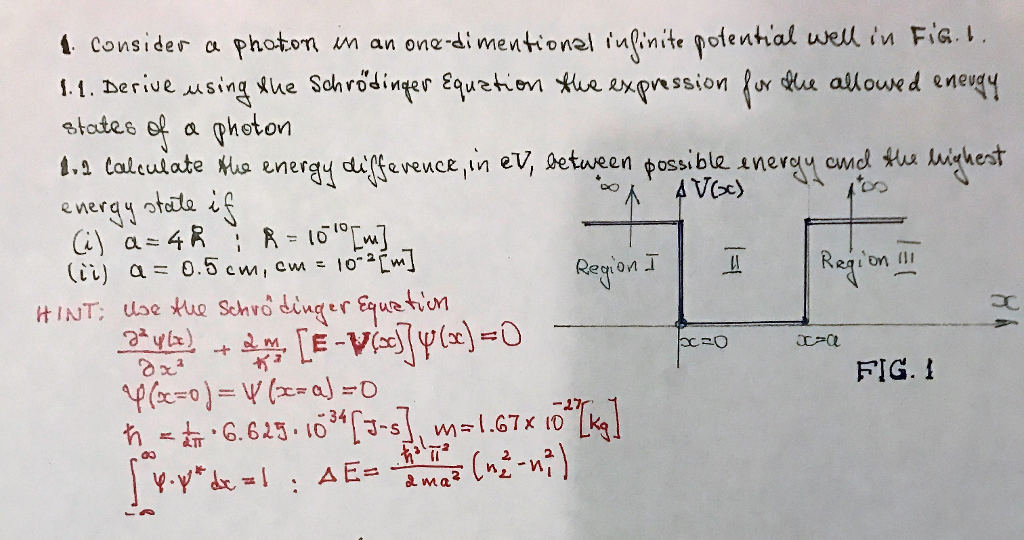 1. Consider a photon in an one-dimentional infinite potential well in FIG. 1.
1.1. Derive using the Schrödinger Equation the expression for the allowed energy
states of a photon
1.2 Calculate the energy difference, in eV, between possible energy and the highest
energy state if
(i) a = 4 Å ; Å = 10⁻¹⁰ [m]
(ii) a = 0.5 cm, cm = 10⁻² [m]
HINT: Use the Schrödinger Equation
∂²ψ(x)/∂x² + 2m/ħ² [E - V(x)] ψ(x) = 0
ψ(x=0) = ψ(x=a) = 0
ħ = 1/2π · 6.625 · 10⁻³⁴ [J-s], m = 1.67 × 10⁻²⁷ [kg]
∫_{-∞}^{∞} ψ·ψ* dx = 1 ; ΔE = ħ²π²/2ma² (n₂² - n₁²)
+∞
V(x)
+∞
Region I
II
Region III
x
x=0
x=a
FIG. 1